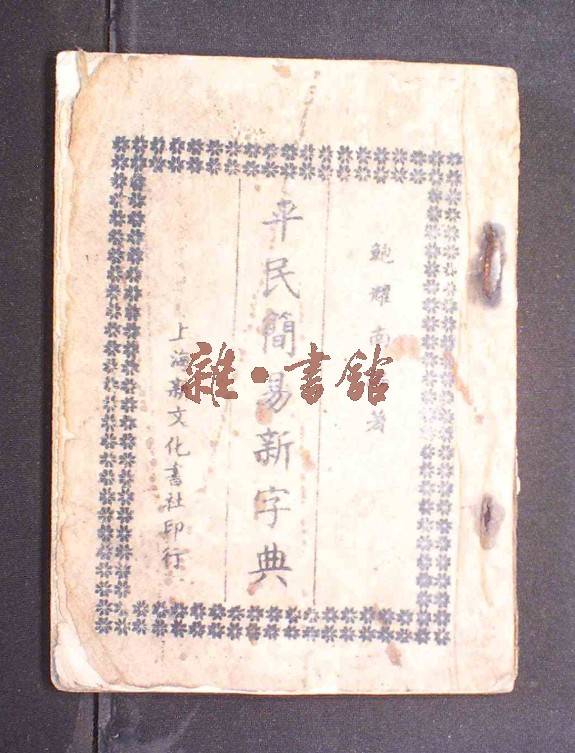 鮑耀南 著
平民簡易新字典
上海新文化書社印行
雜·書館